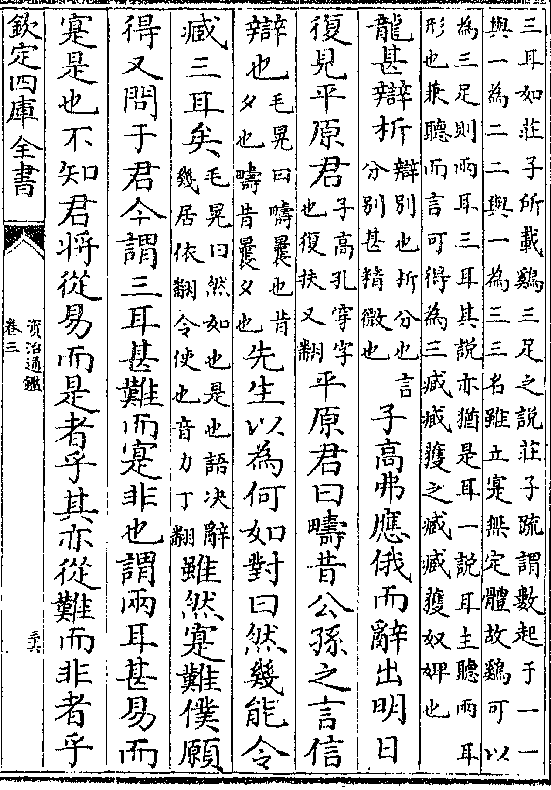 三耳如莊子所載鷄三足之說莊子疏謂數起于一一
與一為二二與一為三三名雖立寔無定體故鷄可以
為三足則兩耳三耳其說亦猶是耳一說耳主聽兩耳
形也兼聽而言可得為三臧臧獲之臧臧獲奴婢也
龍甚辯析辯別也折分也言分別甚精微也子高弗應俄而辭出明日
復見平原君子高孔穿字也復扶又翻平原君曰疇昔公孫之言信
辯也毛晃曰疇曩也昔夕也疇昔曩夕也先生以為何如對曰然幾能令
臧三耳矣毛晃曰然如也是也語決辭幾居依翻令使也音力丁翻雖然寔難僕願
得又問于君今謂三耳甚難而寔非也謂兩耳甚易而
寔是也不知君將從易而是者乎其亦從難而非者乎
欽定四庫全書
資治通鑑
卷三